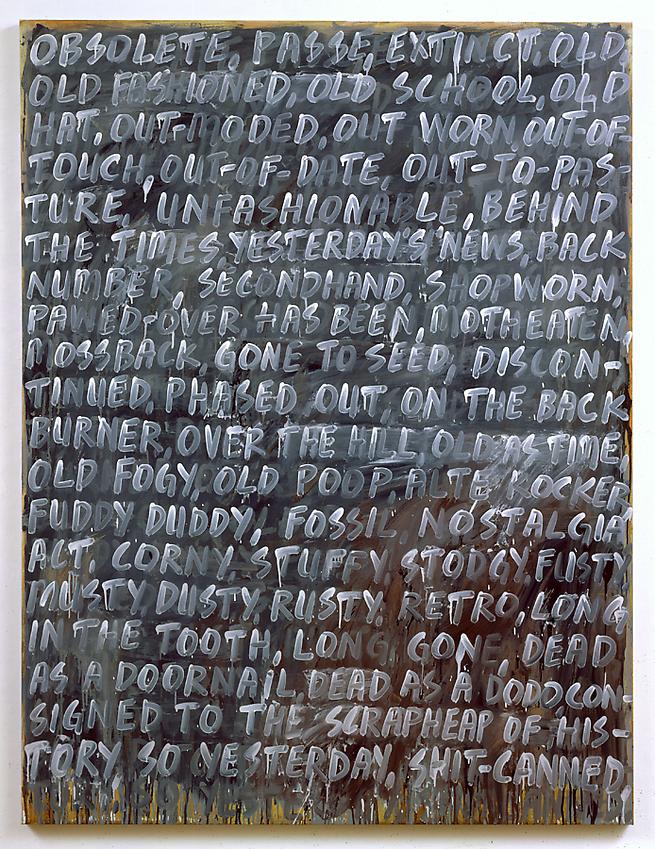 OBSOLETE, PASSE, EXTINCT, OLD
OLD FASHIONED, OLD SCHOOL, OLD
HAT, OUT-MODED, OUT WORN, OUT-OF-
TOUCH, OUT-OF-DATE, OUT-TO-PAS-
TURE, UNFASHIONABLE, BEHIND
THE TIMES, YESTERDAY'S NEWS, BACK
NUMBER, SECONDHAND, SHOPWORN,
PAWED-OVER, HAS BEEN, MOTHEATEN,
MOSSBACK, GONE TO SEED, DISCON-
TINUED, PHASED OUT, ON THE BACK
BURNER, OVER THE HILL, OLD AS TIME,
OLD FOGY, OLD POOP, ALTE KOCKER
FUDDY DUDDY, FOSSIL, NOSTALGIA
ACT, CORNY, STUFFY, STODGY, FUSTY
MUSTY, DUSTY, RUSTY, RETRO, LONG
IN THE TOOTH, LONG GONE, DEAD
AS A DOORNAIL, DEAD AS A DODO CON-
SIGNED TO THE SCRAPHEAP OF HIS-
TORY, SO YESTERDAY, SHIT-CANNED